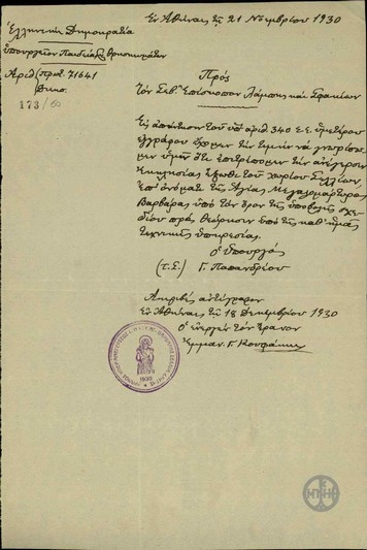 Ἐν Ἀθήναις τῇ 21 Νοεμβρίου 1930
Ἑλληνικὴ Δημοκρατία
Ὑπουργεῖον Παιδείας & Θρησκευμάτων
Ἀριθ. Πρωτ. 71641
Διεκπ.
173/60
Πρὸς
Τὸν Σεβ. Ἐπίσκοπον Λάμπης καὶ Σφακίων
Εἰς ἀπάντησιν τοῦ ὑπ' ἀριθ. 340 ἐ.ἔ. ὑμετέρου
ἐγγράφου ἔχομεν τὴν τιμὴν νὰ γνωρίσω-
μεν ὑμῖν ὅτι ἐπιτρέπομεν τὴν ἀνέγερσιν
Ἐκκλησίας ἔξωθι τοῦ χωρίου Σελλίων,
ἐπ' ὀνόματι τῆς Ἁγίας Μεγαλομάρτυρος
Βαρβάρας ὑπὸ τὸν ὅρον τῆς ὑποβολῆς σχε-
δίου πρὸς θεώρησιν ὑπὸ τῆς καθ' ἡμᾶς
τεχνικῆς ὑπηρεσίας.
Ὁ Ὑπουργὸς
(Τ.Σ.) Γ. Παπανδρέου
Ἀκριβὲς ἀντίγραφον
Ἐν Ἀθήναις τῇ 18 Δεκεμβρίου 1930
Ὁ ἐνεργῶν τὸν ἔρανον
Ἐμμαν. Γ.
1930